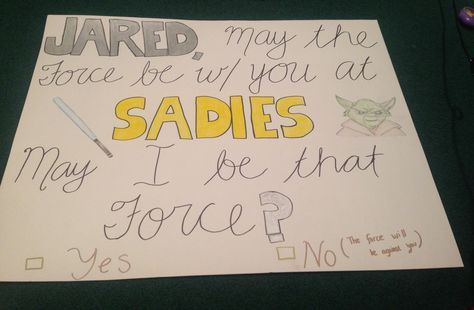 JARED, May the
Force be w/ you at
SADIES
May I be that
Force?
Yes No (The force will
be against you)